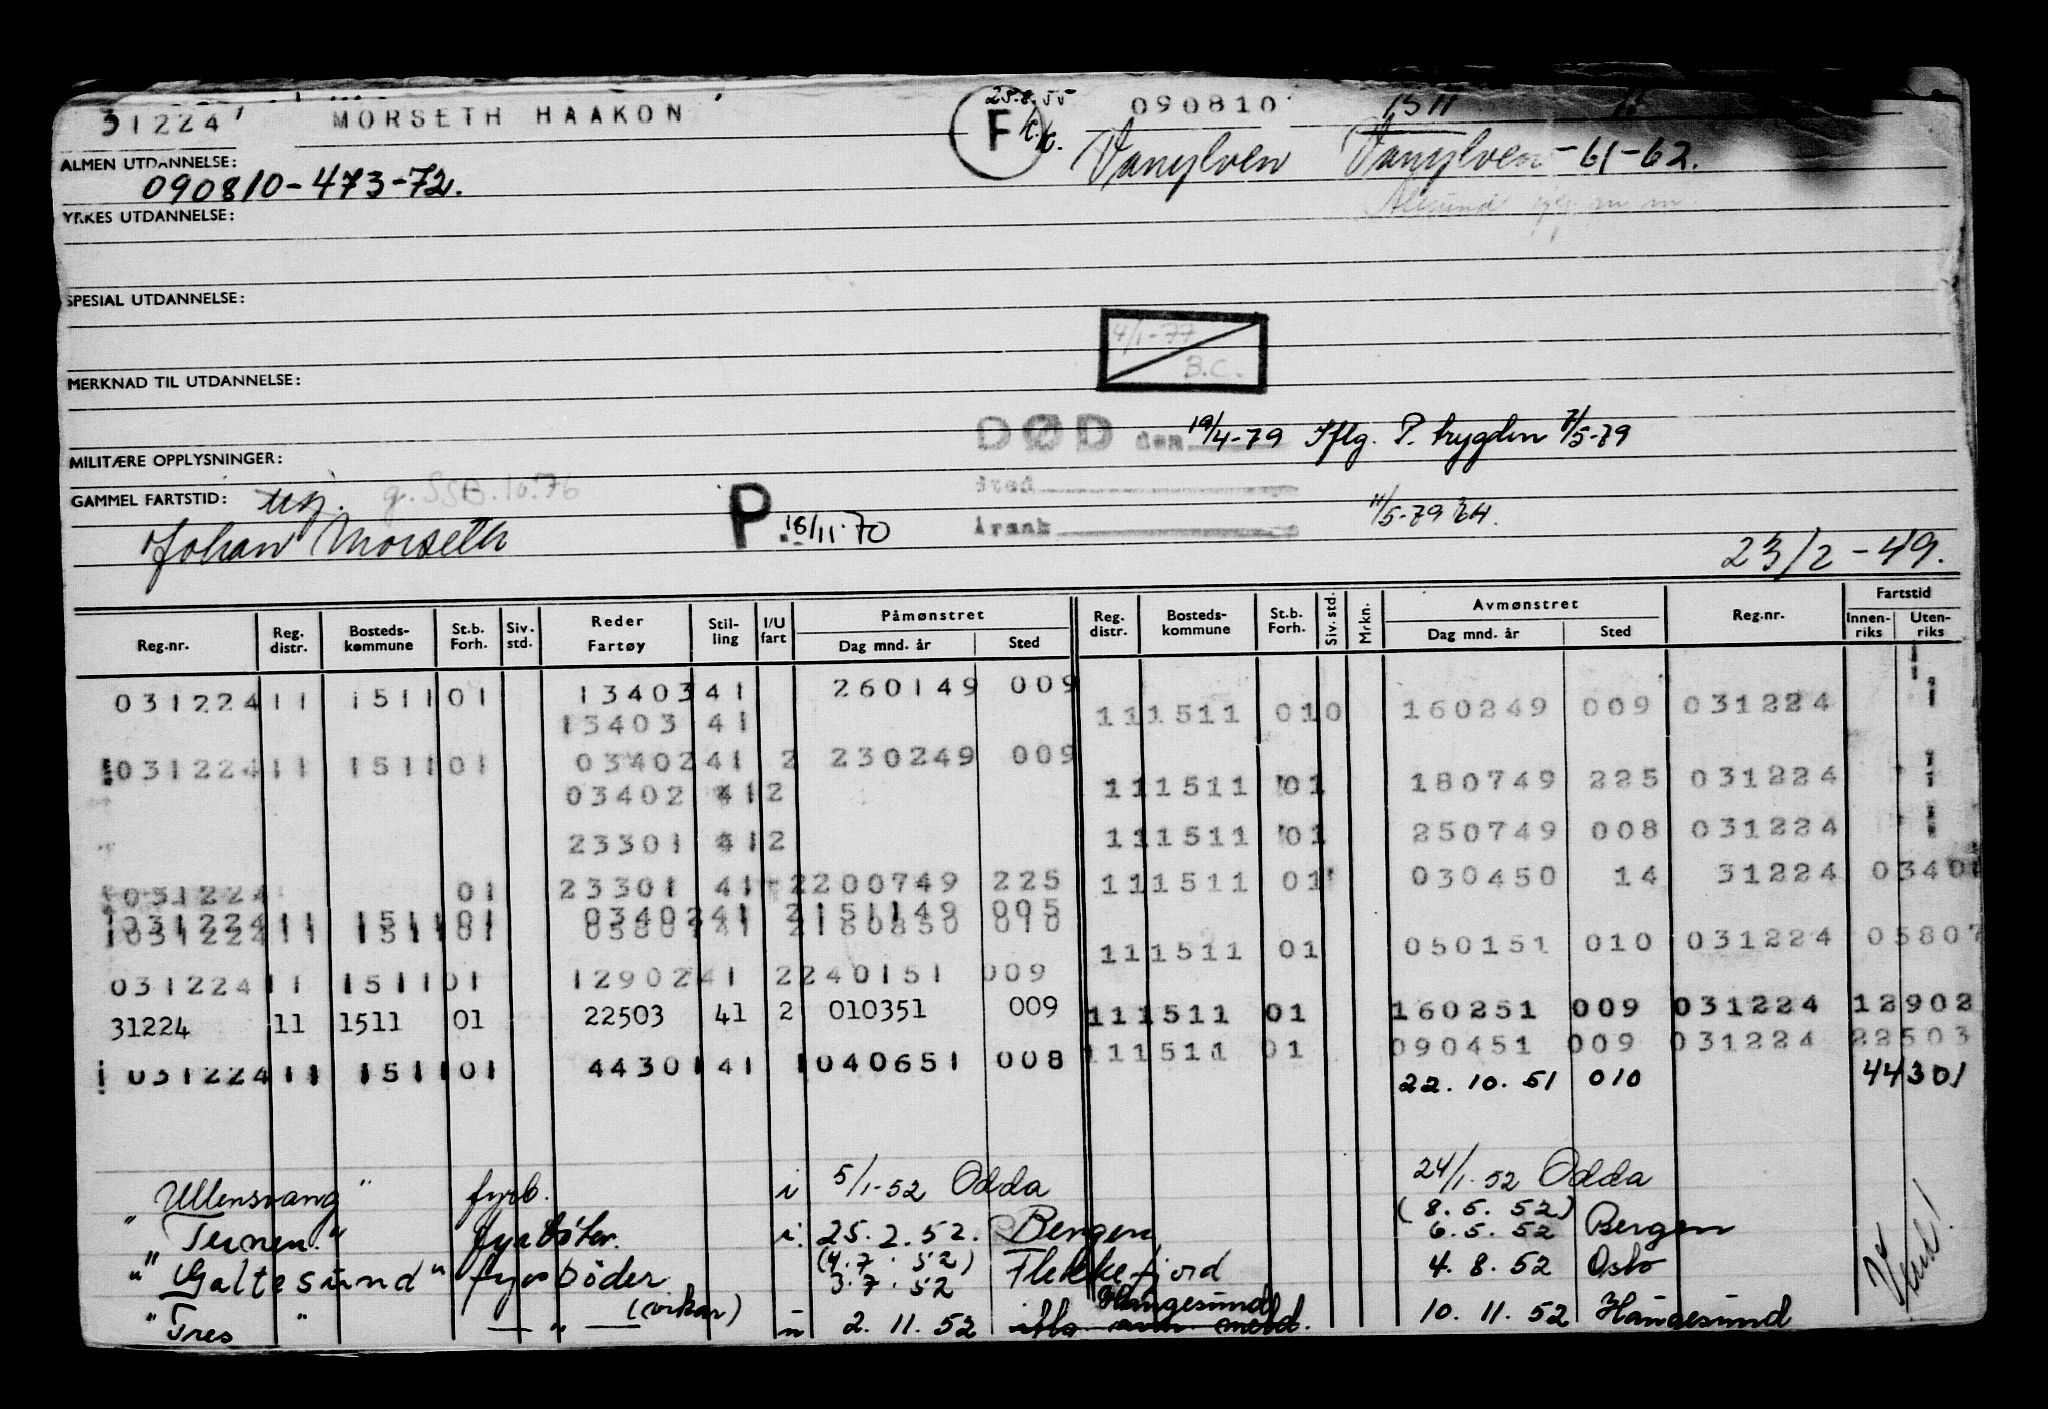 31224 MORSETH HAAKON F 25.8.55 k.k. 090810 1511
ALMEN UTDANNELSE: Vanylven Vanylven-61-62.
090810-473-72.
YRKES UTDANNELSE: Ålesund
SPESIAL UTDANNELSE:
4/1-77
B.C.
MERKNAD TIL UTDANNELSE:
DØD den 19/4-79 Iflg. P. trygden 7/5-79
MILITÆRE OPPLYSNINGER:
Sted
GAMMEL FARTSTID: g. SSB.10.76
P 18/11-70 Årsak 11/5-79
Johan Morseth 23/2-49.
Reg.nr. Reg. distr. Bosteds-kommune St.b. Forh. Siv. std. Reder Fartøy Stil-ling I/U fart Påmønstret Dag mnd. år Sted Reg. distr. Bosteds-kommune St.b. Forh. Siv. std. Mrkn. Avmønstret Dag mnd. år Sted Reg.nr. Fartstid Innen-riks Uten-riks
031224 11 1511 01 13403 41 260149 009
13403 41 11 1511 010 160249 009 031224
031224 11 1511 01 03402 41 2 230249 009
03402 41 2 11 1511 01 180749 225 031224
23301 41 2 11 1511 01 250749 008 031224
031224 01 23301 41 2 200749 225 11 1511 01 030450 14 31224 0340
031224 11 1511 01 03402 41 2 151149 005
031224 11 1511 01 05807 41 2 180850 010
11 1511 01 050151 010 031224 05807
031224 11 1511 01 12902 41 2 240151 009
31224 11 1511 01 22503 41 2 010351 009 11 1511 01 160251 009 031224 12902
11 1511 01 090451 009 031224 22503
031224 11 1511 01 44301 41 1 040651 008
22.10.51 010 44301
"Ullensvang" fyrb. i 5/1-52 Odda 24/1.52 Odda
(8.5.52)
"Ternen." fyrbøter. i. 25.2.52. Bergen 6.5.52 Bergen
(4.7.52)
"Galtesund" fyrbøder 3.7.52 Flekkefjord 4.8.52 Oslo
(vikar) Haugesund
"Tres" — " — 2.11.52 10.11.52 Haugesund